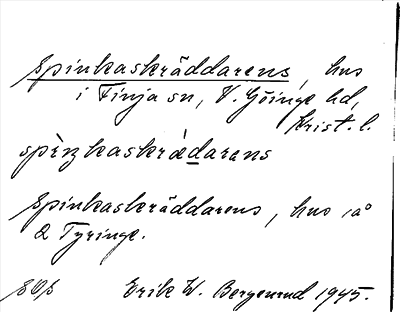 Spinkaskräddarens, hus
i Finja sn, V. Göinge hd,
Krist. l.
spìŋkaskrædarans
Spinkaskräddarens, hus på
Q Tyringe.
Erik W. Bergenrud 1945.